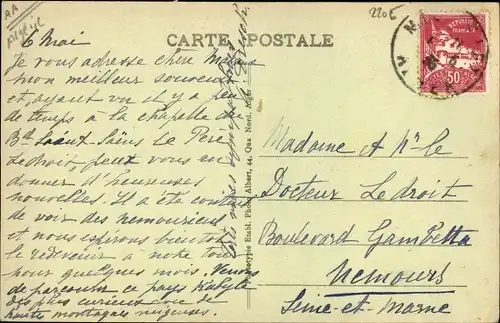 AA
Algérie
220E
CARTE POSTALE
6 Mai
Je vous adresse cher
mon meilleur souvenir
et ayant vu il y a peu
de temps a la chapelle du
Bd Saint-Saëns Le Père
Ledroit, peux vous en
donner d'heureuses
nouvelles. Il a été content
de voir des nemouriens
et nous espérons bientôt
le à notre tour
pour quelques mois. Venons
de parcourir ce pays Kabyle
des plus curieux avec de
hautes montagnes neigeuses.
Phototypie Etabl. Photo Albert, 44, Gde Nord, Alger
REPUBLIQUE
FRANÇAISE
50
POSTES ALGERIE
Madame &
Docteur Ledroit
Boulevard Gambetta
Nemours
Seine-et-Marne